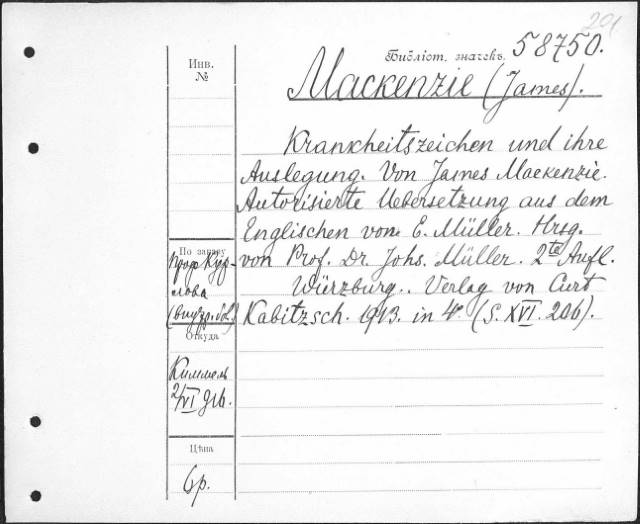 201
Библіот. значекъ. 58750.
Инв.
№
Mackenzie (James).
Krankheitszeichen und ihre
Auslegung. Von James Mackenzie.
Autorisierte Uebersetzung aus dem
Englischen von E. Müller. Hrsg.
von Prof. Dr. Johs. Müller. 2te Aufl.
Würzburg. Verlag von Curt
Kabitzsch. 1913. in 4º (S. XVI. 206).
По заказу
Проф. Кур-
лова
Откуда
Киммель
2/VI 916.
Цѣна
6р.